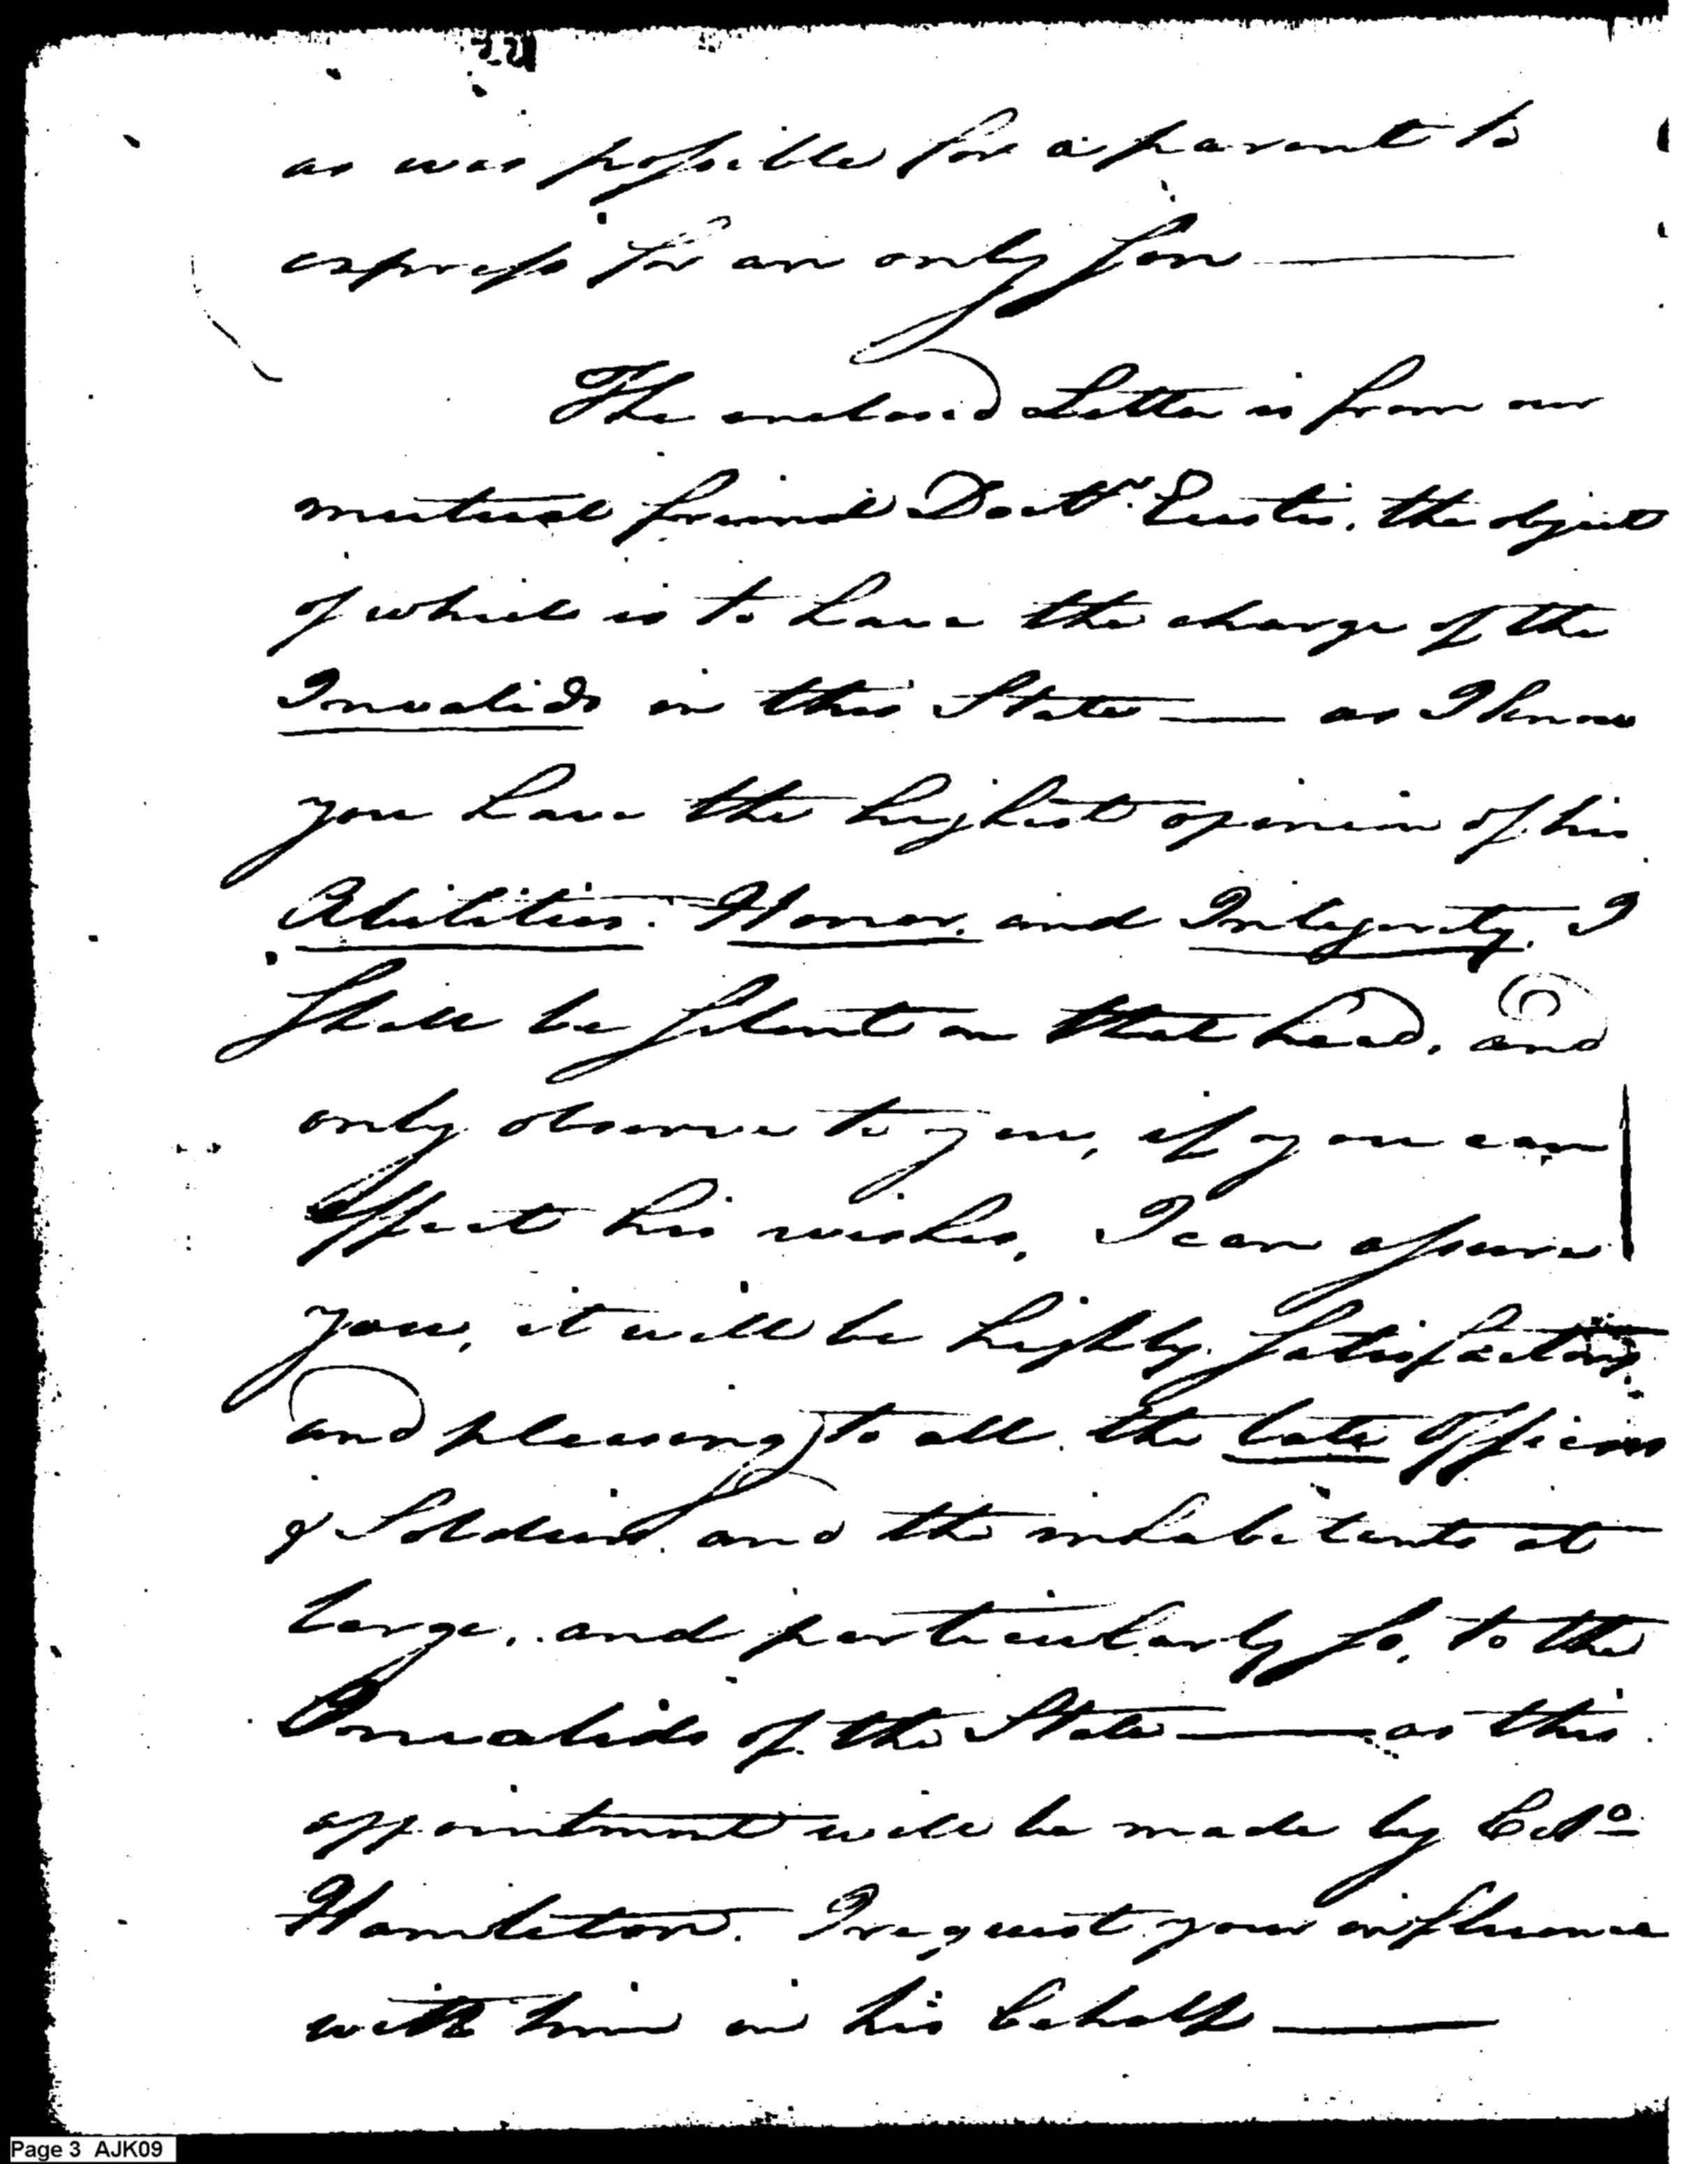 as was possible for a parent to
express for an only Son —
The enclosed Letter is from our
mutual friend Doctr. Eustis, the object
of which is to have the charge of the
Invalids in this State — as I know
you have the highest opinion of his
Abilities. Honor, and Integrity, I
Shall be Silent on that head, and
only observe to you, if you can
effect his wishes, I can assure
you, it will be highly Satisfactory
and pleasing to all the late Officers
& Soldiers, and the inhabitants at
large, and particularly So, to the
Invalids of the State — as this
appointment will be made by Colo
Hamilton. I request your influence
with him in his behalf —
Page 3 AJK09